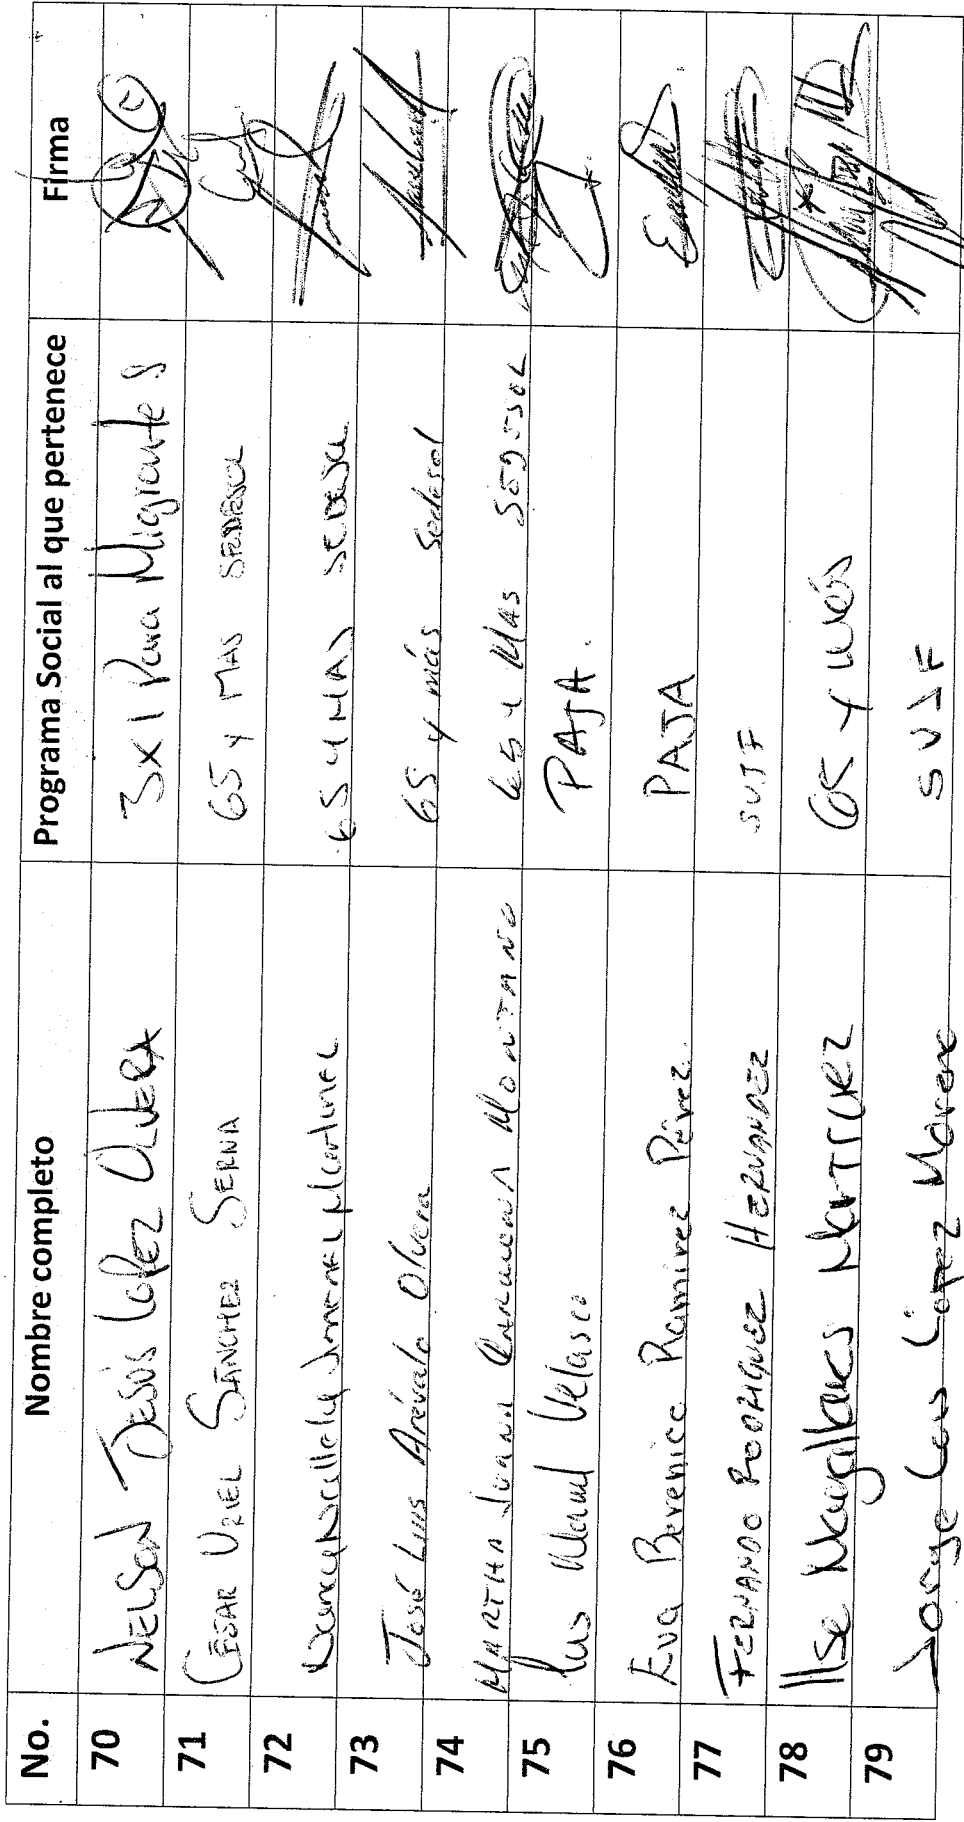 No. Nombre completo Programa Social al que pertenece Firma
70 NELSON JESÚS LOPEZ OLVERA 3x1 Para Migrantes
71 CÉSAR URIEL SÁNCHEZ SERNA 65 y MAS SEDESOL
72 65 y MAS SEDESOL
73 José Luis Arévalo Olvera 65 y más Sedesol
74 MARTHA Juana MONTANO 65 y Mas SEDESOL
75 Luis Velasco PAJA.
76 Eva Berenice Ramírez Pérez. PAJA
77 FERNANDO RODRIGUEZ HERNANDEZ SVJF
78 Ilse Magallanes MARTINEZ 65 y más
79 Jorge Luis López Moreno SVJF